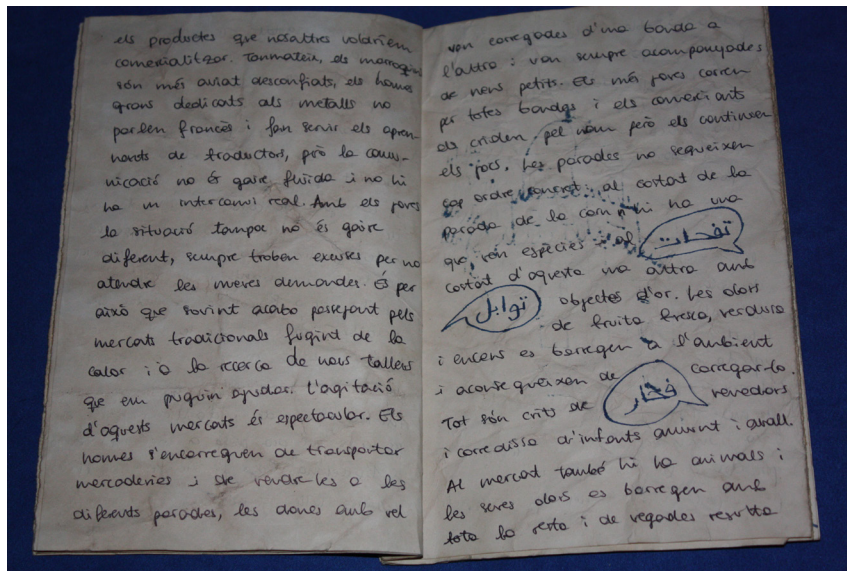 els productes que nosaltres voldríem
comercialitzar. Tanmateix, els marroquins
són més aviat desconfiats, els homes
grans dedicats als metalls no
parlen francès i fan servir els apre-
nents de traductors, però la comu-
nicació no és gaire fluida i no hi
ha un intercanvi real. Amb els joves
la situació tampoc no és gaire
diferent, sempre troben excuses per no
atendre les meves demandes. És per
això que sovint acabo passejant pels
mercats tradicionals fugint de la
calor i a la recerca de nous tallers
que em puguin ajudar. L'agitació
d'aquests mercats és espectacular. Els
homes s'encarreguen de transportar
mercaderies i de vendre-les a les
diferents parades, les dones amb vel
van carregades d'una banda a
l'altra i van sempre acompanyades
de nens petits. Els més joves corren
per totes bandes i els comerciants
els criden pel nom però els continuen
els jocs. Les parades no segueixen
cap ordre concret: al costat de la
parada de la carn hi ha una
que ven espècies i al تفحات
costat d'aquesta una altra amb
توابل objectes d'or. Les olors
de fruita fresca, verdura
i encens es barregen a l'ambient
i aconsegueixen de carregar-lo.
Tot són crits de فخار venedors
i corredissa d'infants amunt i avall.
Al mercat també hi ha animals i
les seves olors es barregen amb
tota la resta i de vegades resulta